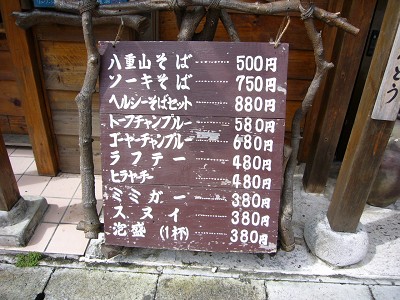 八重山そば……… 500円
ソーキそば……… 750円
ヘルシーそばセット 880円
トーフチャンプルー… 580円
ゴーヤーチャンプルー 680円
ラフテー……… 480円
ヒラヤーチー……… 480円
ミミガー……… 380円
スヌイ……… 380円
泡盛(1杯)…… 380円
とう